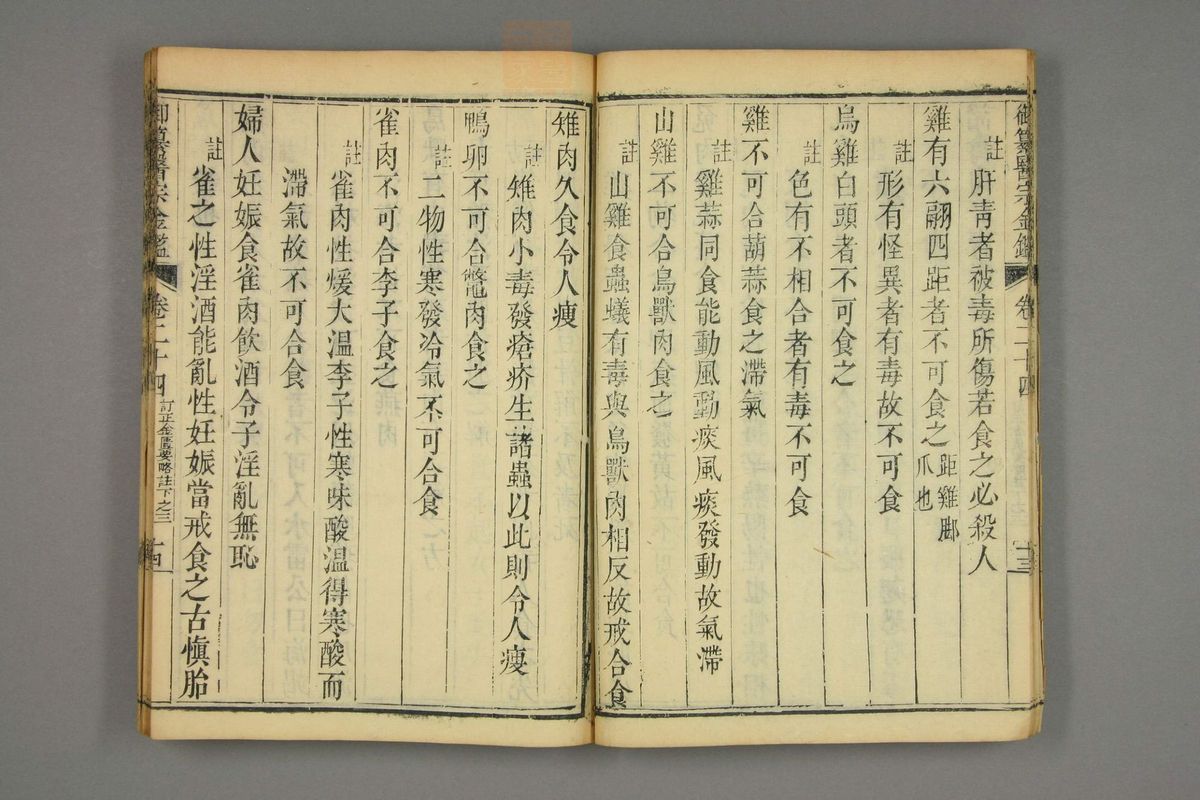 御纂醫宗金鑑 卷二十四 十三
註肝靑者被毒所傷若食之必殺人
雞有六翮四距者不可食之距雞脚爪也
註形有怪異者有毒故不可食
烏雞白頭者不可食之
註色有不相合者有毒不可食
雞不可合葫蒜食之滯氣
註雞蒜同食能動風動痰風痰發動故氣滯
山雞不可合鳥獸肉食之
註山雞食蟲蟻有毒與鳥獸肉相反故戒合食
雉肉久食令人瘦
註雉肉小毒發瘡疥生諸蟲以此則令人瘦
鴨卵不可合鼈肉食之
註二物性寒發冷氣不可合食
雀肉不可合李子食之
註雀肉性煖大溫李子性寒味酸溫得寒酸而
滯氣故不可合食
婦人妊娠食雀肉飮酒令子淫亂無恥
註雀之性淫酒能亂性妊娠當戒食之古愼胎
御纂醫宗金鑑 卷二十四 訂正金匱要略註下之三 十四